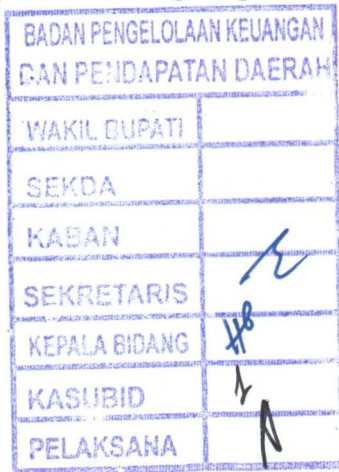 BADAN PENGELOLAAN KEUANGAN
DAN PENDAPATAN DAERAH
WAKIL BUPATI
SEKDA
KABAN
SEKRETARIS
KEPALA BIDANG
KASUBID
PELAKSANA